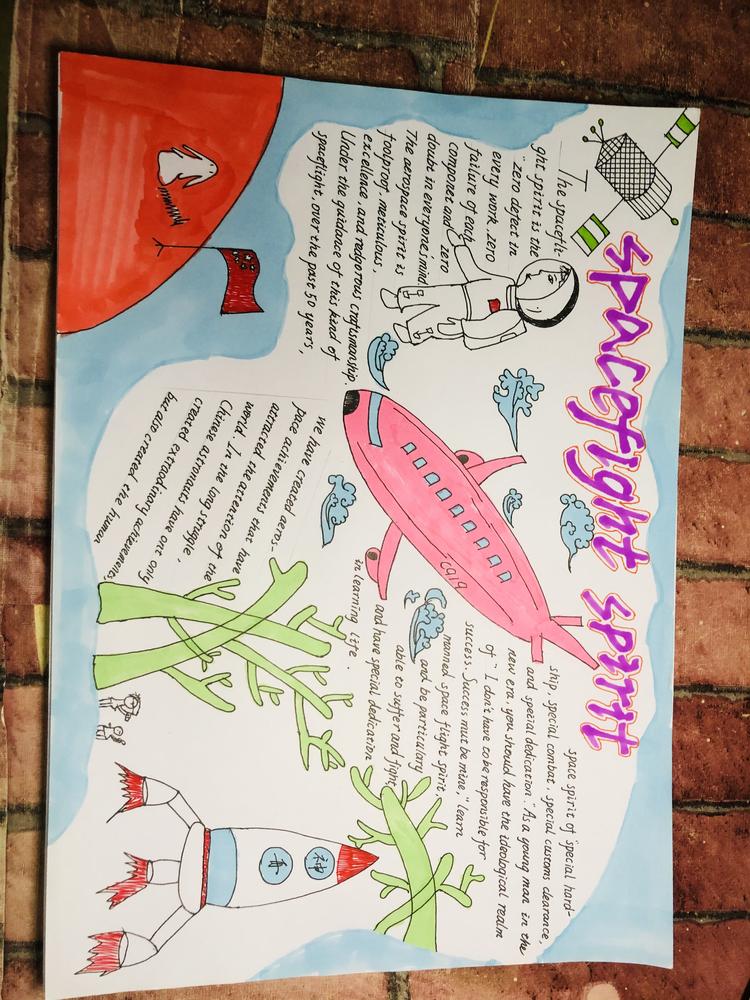 spacefight spirit
The spacefli-
ght spirit is the
"zero defect in
every work. zero
failure of each
componet and zero
doubt in everyone's mind
The aerospace spirit is
foolproof, meticulous,
excellence, and redgorous craftsmanship.
Under the guidance of this kind of
spaceflight, over the past 50 years,
we have created aero-
pace achievements that have
attracted the attention of the
world. In the long struggle,
Chinese astronauts have ont only
created extraodinary achievements,
but also created the human
space spirit of "special hard-
ship, special combat, special customs clearance,
and special dedication". As a young man in the
new era, you should have the ideological realm
of "I don't have to be responsible for
success. Success must be mine," learn
manned space flight spirit,
and be particulary
able to suffer and fight,
and have special dedication
in learning life.
c919
神舟